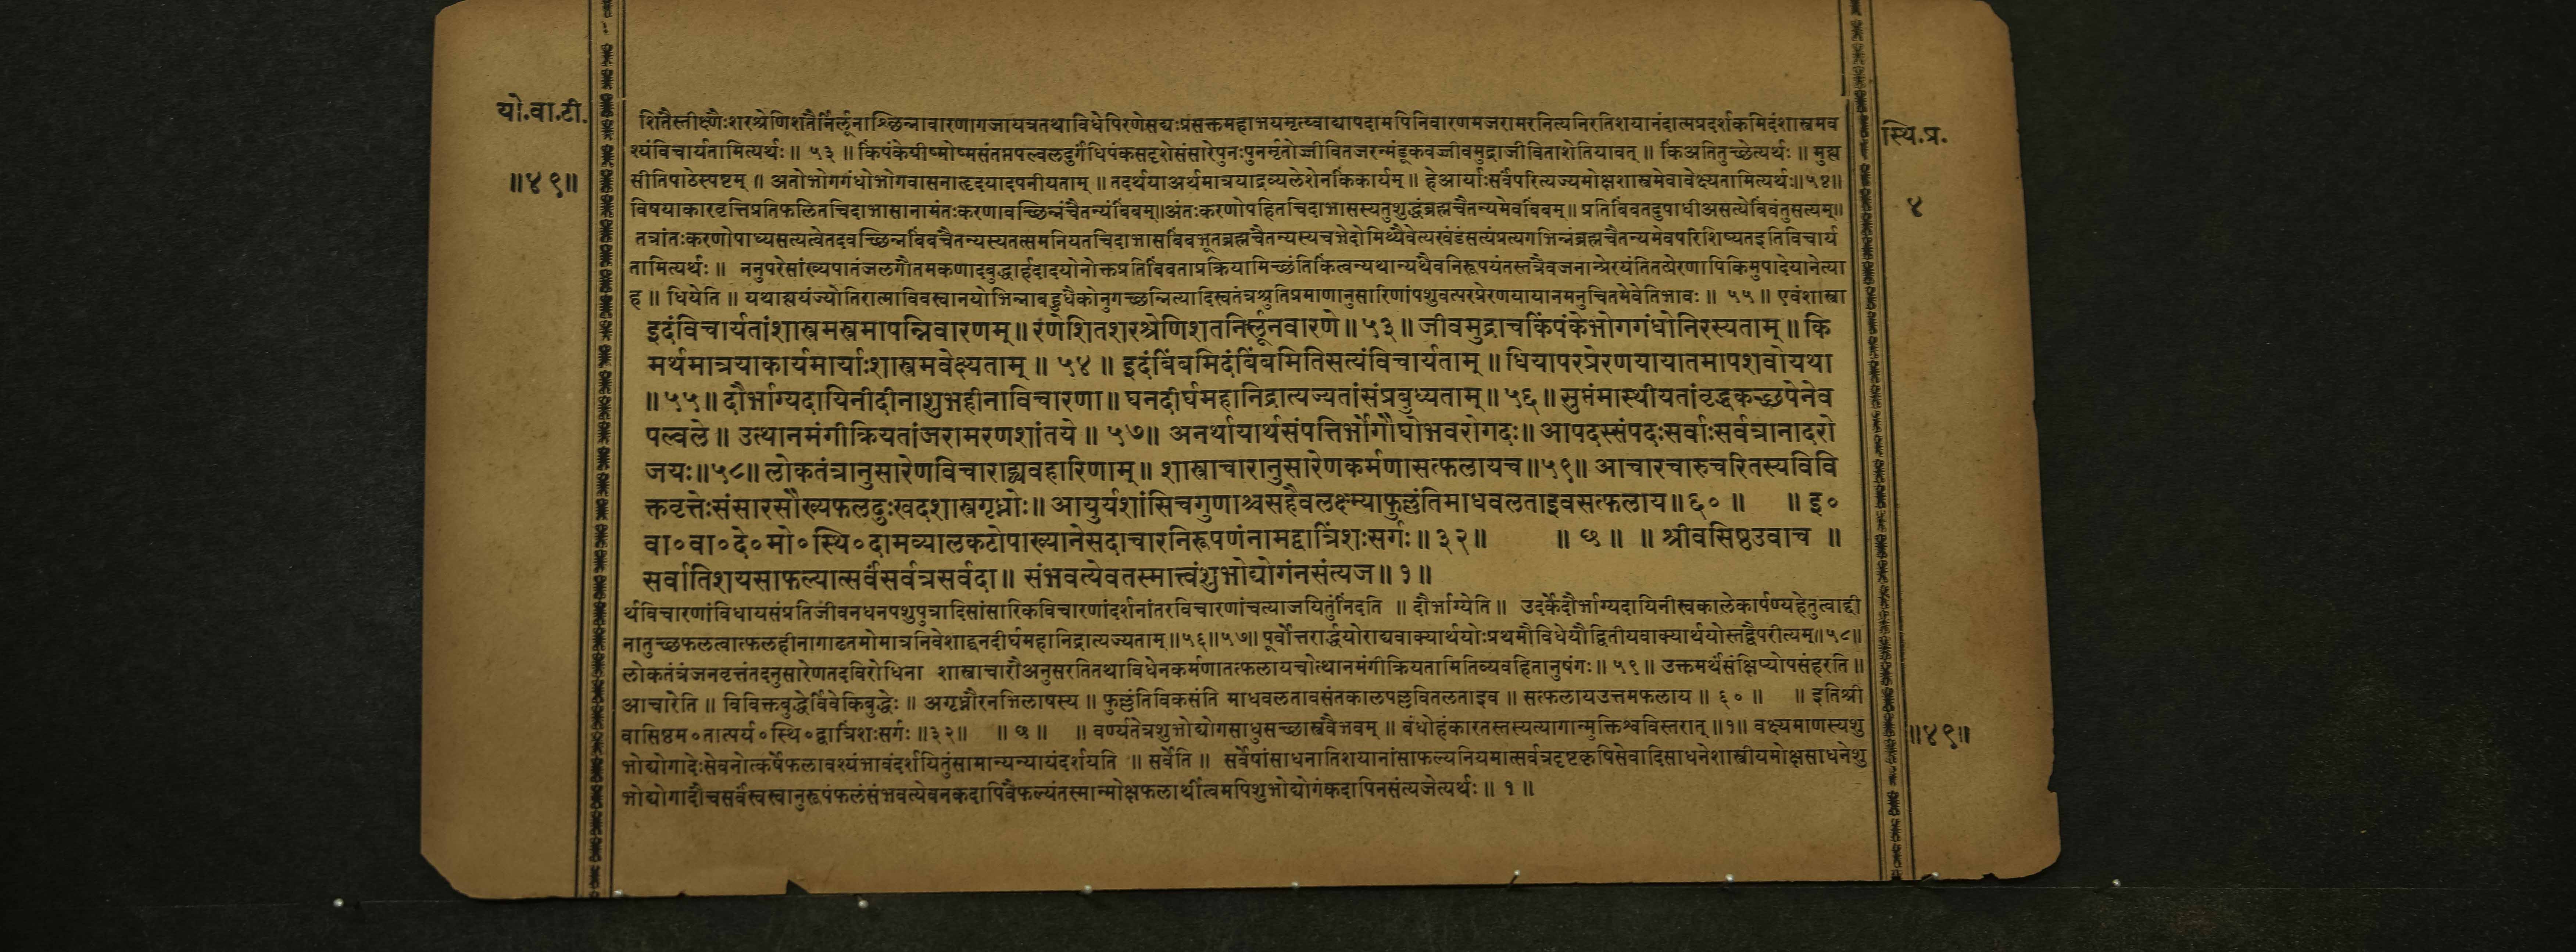 यो.वा.टी.
॥४९॥
स्थि.प्र.
४
शितैस्तीक्ष्णैःशरश्रेणिशतैर्निर्लूनाश्छिन्नावारणागजायत्रतथाविधेपिरणेसद्यःप्रसक्तमहाभयमृत्य्वाद्यापदामपिनिवारणमजरामरनित्यनिरतिशयानंदात्मप्रदर्शकमिदंशास्त्रमव
श्यंविचार्यतामित्यर्थः ॥ ५३ ॥ किंपंकेग्रीष्मोष्मसंतप्तपल्वलदुर्गंधिपंकसदृशेसंसारेपुनःपुनर्मृतोज्जीवितजरन्मंडूकवज्जीवमुद्राजीविताशेतियावत् ॥ किंअतितुच्छेत्यर्थः ॥ मुह्य
सीतिपाठेस्पष्टम् ॥ अतोभोगगंधोभोगवासनाहृदयादपनीयताम् ॥ तदर्थयाअर्थमात्रयाद्रव्यलेशेनकिंकार्यम् ॥ हेआर्याःसर्वंपरित्यज्यमोक्षशास्त्रमेवावेक्ष्यतामित्यर्थः॥५४॥
विषयाकारवृत्तिप्रतिफलितचिदाभासानामंतःकरणावच्छिन्नंचैतन्यंबिंबम्॥अंतःकरणोपहितचिदाभासस्यतुशुद्धंब्रह्मचैतन्यमेवबिंबम्॥ प्रतिबिंबतदुपाधीअसत्येबिंबंतुसत्यम्॥
तत्रांतःकरणोपाध्यसत्यत्वेतदवच्छिन्नबिंबचैतन्यस्यतत्समनियतचिदाभासबिंबभूतब्रह्मचैतन्यस्यचभेदोमिथ्यैवेत्यखंडंसत्यंप्रत्यगभिन्नंब्रह्मचैतन्यमेवपरिशिष्यतइतिविचार्य
तामित्यर्थः ॥ ननुपरेसांख्यपातंजलगौतमकणादबुद्धार्हदादयोनोक्तप्रतिबिंबताप्रक्रियामिच्छंतिकिंत्वन्यथान्यथैवनिरूपयंतस्तत्रैवजनान्प्रेरयंतितत्प्रेरणापिकिमुपादेयानेत्या
ह ॥ धियेति ॥ यथाह्ययंज्योतिरात्माविवस्वानयोभिन्नाबहुधैकोनुगच्छन्नित्यादिस्वतंत्रश्रुतिप्रमाणानुसारिणांपशुवत्परप्रेरणयायानमनुचितमेवेतिभावः ॥ ५५ ॥ एवंशास्त्रा
इदंविचार्यतांशास्त्रमस्त्रमापन्निवारणम्॥ रणेशितशरश्रेणिशतनिर्लूनवारणे॥ ५३॥ जीवमुद्राचकिंपंकेभोगगंधोनिरस्यताम्॥ कि
मर्थमात्रयाकार्यमार्याःशास्त्रमवेक्ष्यताम् ॥ ५४ ॥ इदंबिंबमिदंबिंबमितिसत्यंविचार्यताम् ॥ धियापरप्रेरणयायातमापशवोयथा
॥५५॥ दौर्भाग्यदायिनीदीनाशुभहीनाविचारणा॥ घनदीर्घमहानिद्रात्यज्यतांसंप्रबुध्यताम्॥ ५६॥ सुप्तंमास्थीयतांवृद्धकच्छपेनेव
पल्वले ॥ उत्थानमंगीक्रियतांजरामरणशांतये ॥ ५७॥ अनर्थायार्थसंपत्तिर्भोगौघोभवरोगदः॥ आपदस्संपदःसर्वाःसर्वत्रानादरो
जयः॥५८॥ लोकतंत्रानुसारेणविचाराद्व्यवहारिणाम्॥ शास्त्राचारानुसारेणकर्मणासत्फलायच॥५९॥ आचारचारुचरितस्यविवि
क्तवृत्तेःसंसारसौख्यफलदुःखदशास्वगृध्नोः॥ आयुर्यशांसिचगुणाश्चसहैवलक्ष्म्याफुल्लंतिमाधवलताइवसत्फलाय॥६० ॥ ॥ इ०
वा०वा०दे०मो०स्थि०दामव्यालकटोपाख्यानेसदाचारनिरूपणंनामद्वात्रिंशःसर्गः॥ ३२॥ ॥ छ ॥ ॥ श्रीवसिष्ठउवाच ॥
सर्वातिशयसाफल्यात्सर्वंसर्वत्रसर्वदा॥ संभवत्येवतस्मात्त्वंशुभोद्योगंनसंत्यज॥ १॥
र्थविचारणांविधायसंप्रतिजीवनधनपशुपुत्रादिसांसारिकविचारणांदर्शनांतरविचारणांचत्याजयितुंनिंदति ॥ दौर्भाग्येति ॥ उदर्केदौर्भाग्यदायिनीस्वकालेकार्पण्यहेतुत्वाद्दी
नातुच्छफलत्वात्फलहीनागाढतमोमात्रनिवेशाद्घनदीर्घमहानिद्रात्यज्यताम्॥५६॥५७॥ पूर्वोत्तरार्द्धयोराद्यवाक्यार्थयोःप्रथमौविधेयौद्वितीयवाक्यार्थयोस्तद्वैपरीत्यम्॥५८॥
लोकतंत्रंजनवृत्तंतदनुसारेणतदविरोधिना शास्त्राचारौअनुसरतितथाविधेनकर्मणातत्फलायचोत्थानमंगीक्रियतामितिव्यवहितानुषंगः॥ ५९॥ उक्तमर्थंसंक्षिप्योपसंहरति ॥
आचारेति ॥ विविक्तबुद्धेर्विवेकिबुद्धेः ॥ अगृध्नौरनभिलाषस्य ॥ फुल्लंतिविकसंति माधवलतावसंतकालपल्लवितलताइव ॥ सत्फलायउत्तमफलाय ॥ ६० ॥ ॥ इतिश्री
वासिष्ठम०तात्पर्य०स्थि०द्वात्रिंशःसर्गः॥३२॥ ॥ छ ॥ ॥ वर्ण्यतेत्रशुभोद्योगसाधुसच्छास्त्रवैभवम् ॥ बंधोहंकारतस्तस्यत्यागान्मुक्तिश्चविस्तरात् ॥१॥ वक्ष्यमाणस्यशु
भोद्योगादेःसेवनोत्कर्षेफलावश्यंभावंदर्शयितुंसामान्यन्यायंदर्शयति ॥ सर्वेति ॥ सर्वेषांसाधनातिशयानांसाफल्यनियमात्सर्वत्रदृष्टकृषिसेवादिसाधनेशास्त्रीयमोक्षसाधनेशु
भोद्योगादौचसर्वंस्वस्वानुरूपंफलंसंभवत्येवनकदापिवैफल्यंतस्मान्मोक्षफलार्थीत्वमपिशुभोद्योगंकदापिनसंत्यजेत्यर्थः॥ १ ॥
॥४९॥